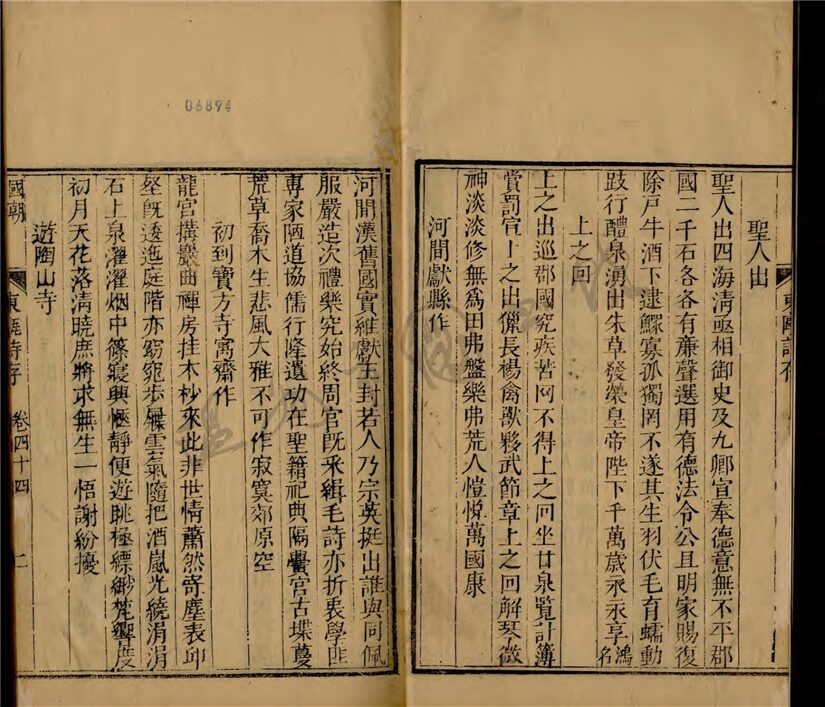 聖人出
聖人出四海淸亟相御史及九卿宣奉德意無不平郡
國二千石各各有亷聲選用有德法令公且明家賜復
除戸牛酒下逮鰥寡孤獨罔不遂其生羽伏毛育蠕動
跂行醴泉湧出朱草發榮皇帝陛下千萬歲永永享鴻名
上之回
上之出巡郡國究疾苦网不得上之回坐甘泉覧計簿
賞罰宜上之出獵長楊禽獸夥武節章上之回解琴徽
神淡淡修無爲田弗盤樂弗荒人愷悅萬國康
河間獻縣作
東甌詩存
06894
河間漢舊國實維獻王封若人乃宗英挺出誰與同佩
服嚴造次禮樂究始終周官旣釆緝毛詩亦折衷學
專家陋道協儒行隆遺功在聖籍祀典隔黌宮古堞蔓
荒草喬木生悲風大雅不可作寂寞郊原空
初到寶方寺寓齋作
龍宮撰巖曲禪房挂木杪來此非世情蕭然寄塵表
壑旣逶迤庭階亦窈窕步屧雲氣隨把酒嵐光繞涓涓
石上泉濯濯烟中篠寢興愜靜便遊眺極縹緲梵響度
初月天花落淸曉庶將求無生一悟謝紛擾
遊陶山寺
國朝
東甌詩存 卷四十四 二